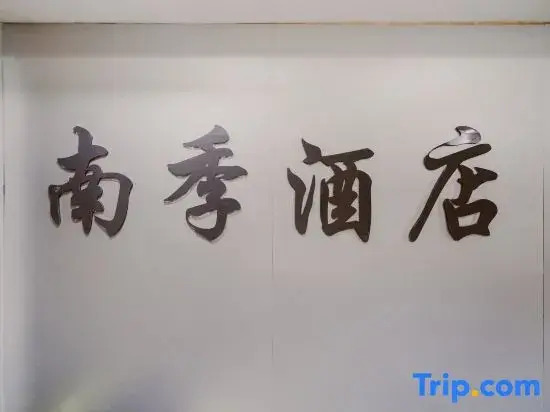 南季酒店
Trip.com